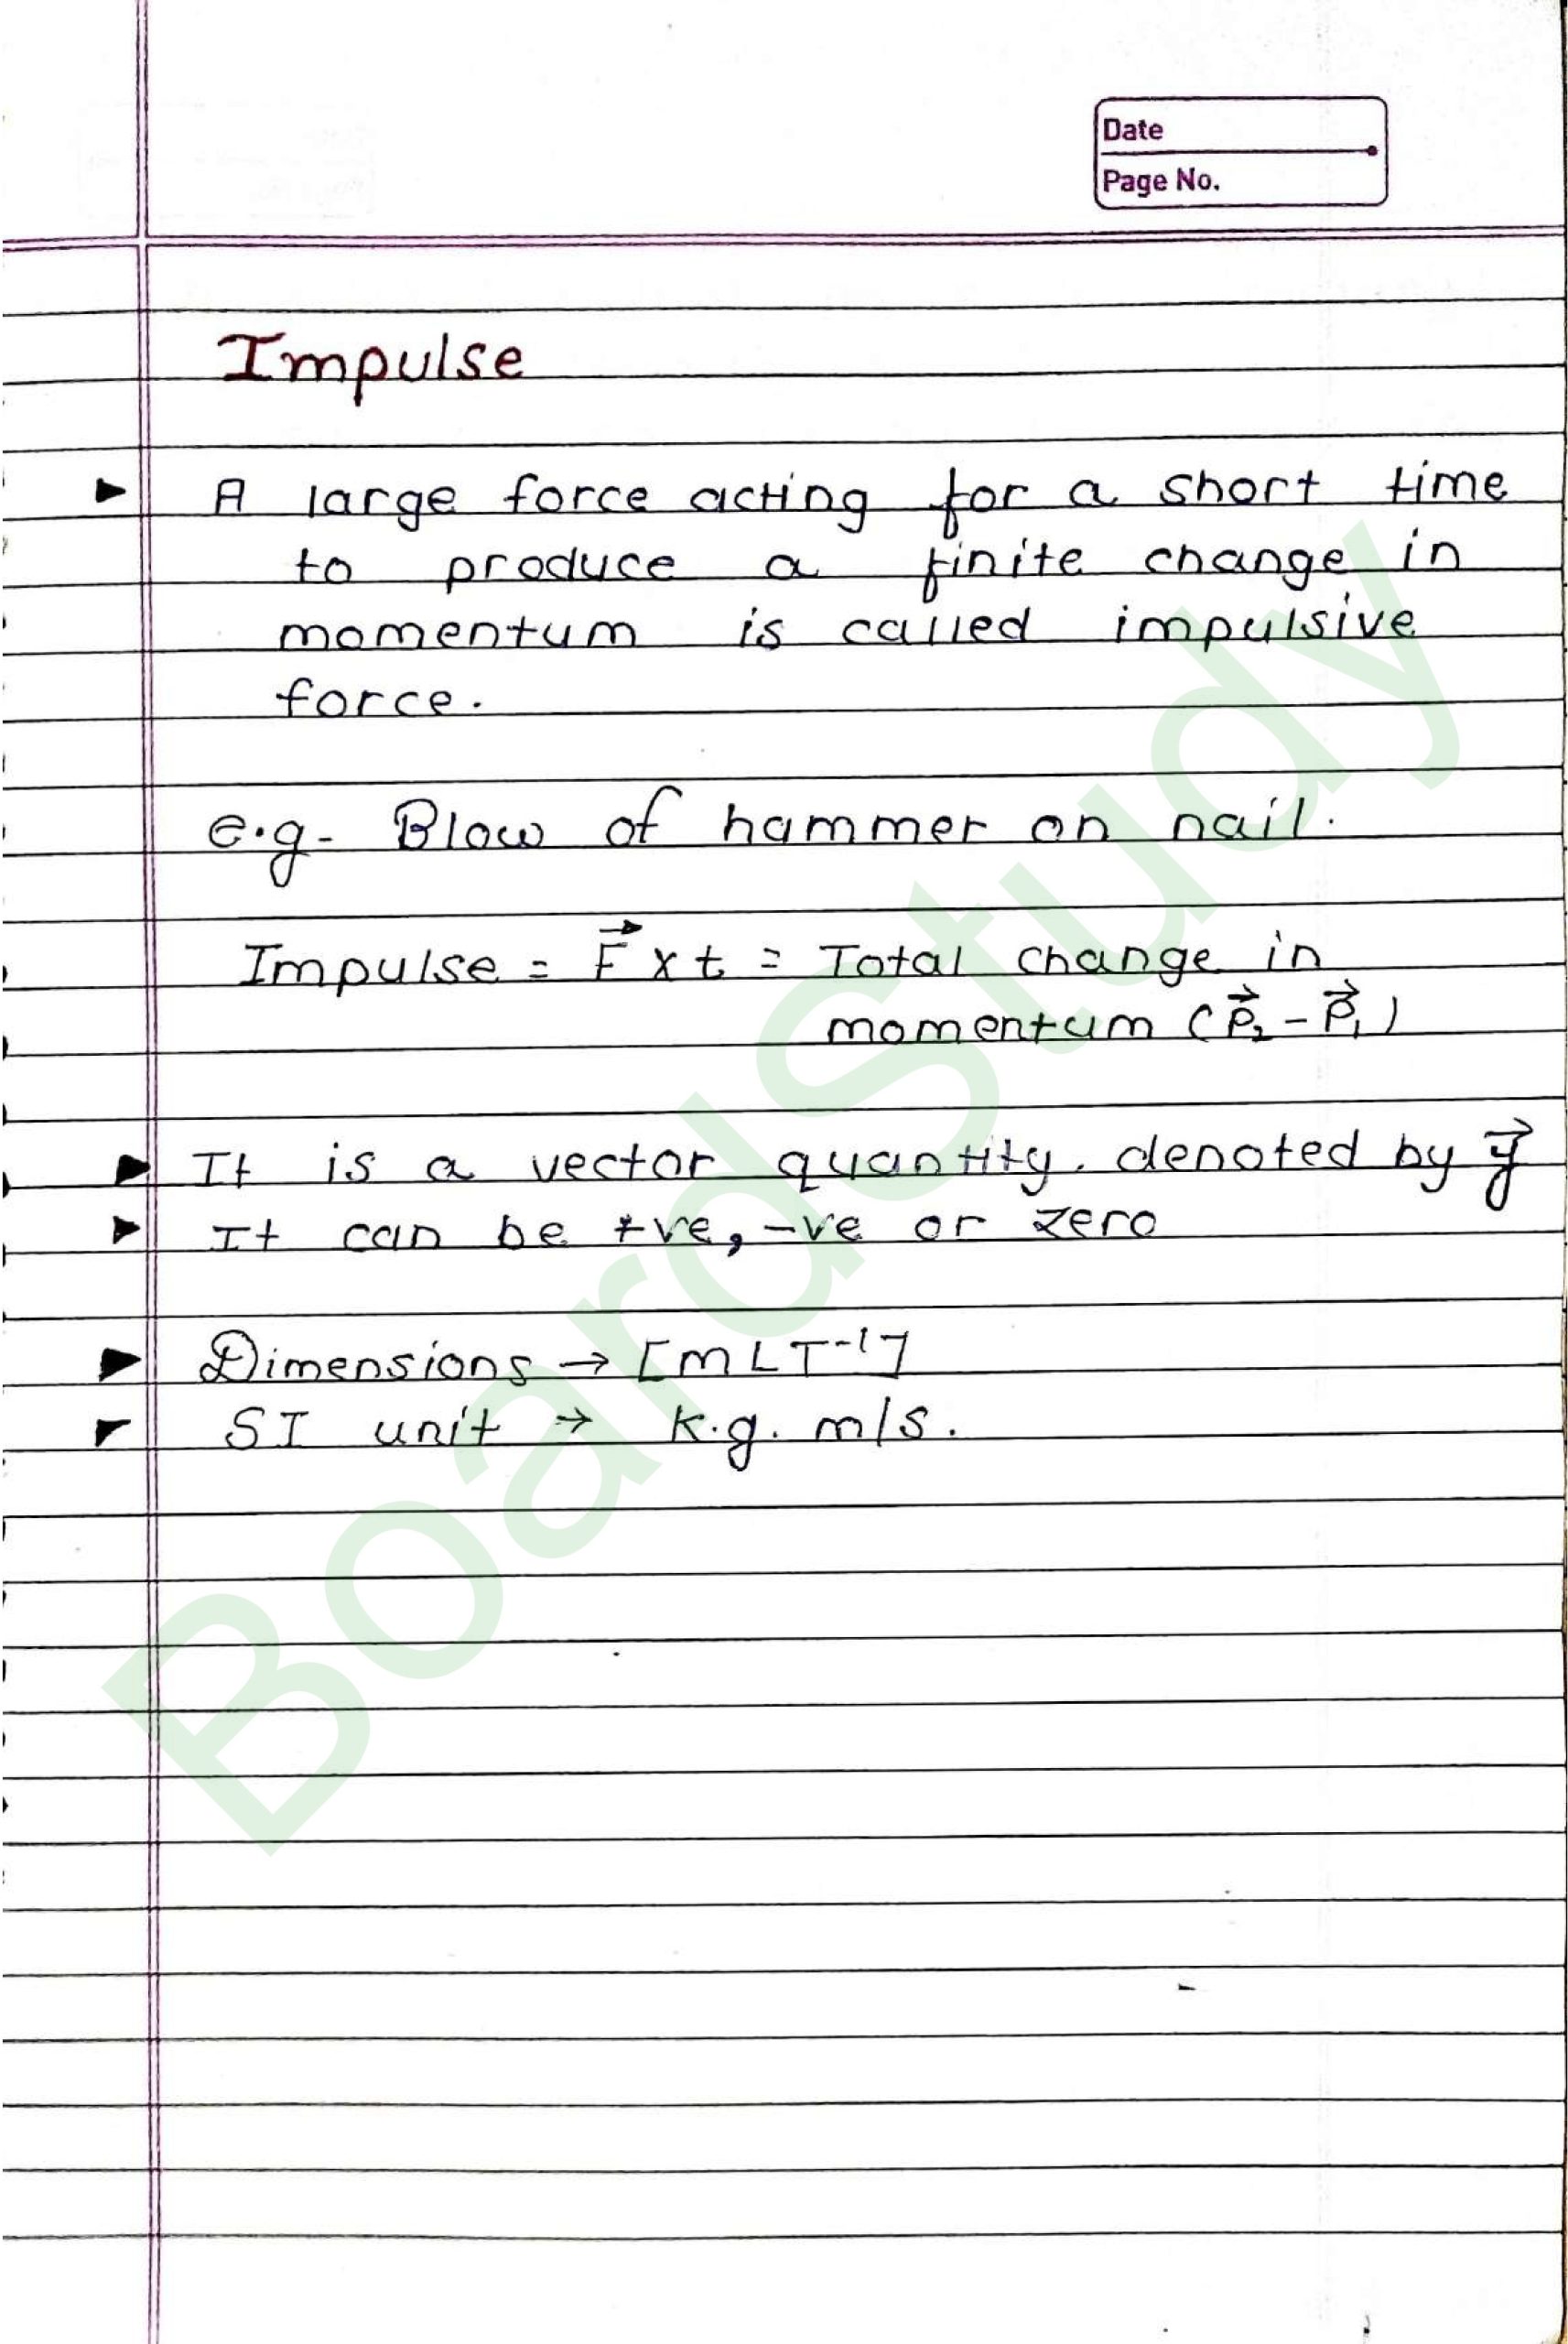 Date
Page No.
Impulse
▶ A large force acting for a short time
to produce a finite change in
momentum is called impulsive
force.
e.g- Blow of hammer on nail.
Impulse = F⃗ x t = Total change in
momentum (P⃗₂ - P⃗₁)
▶ It is a vector quantity. denoted by J⃗
▶ It can be +ve, -ve or zero
▶ Dimensions → [MLT⁻¹]
▶ SI unit → k.g. m/s.
BoardStudy